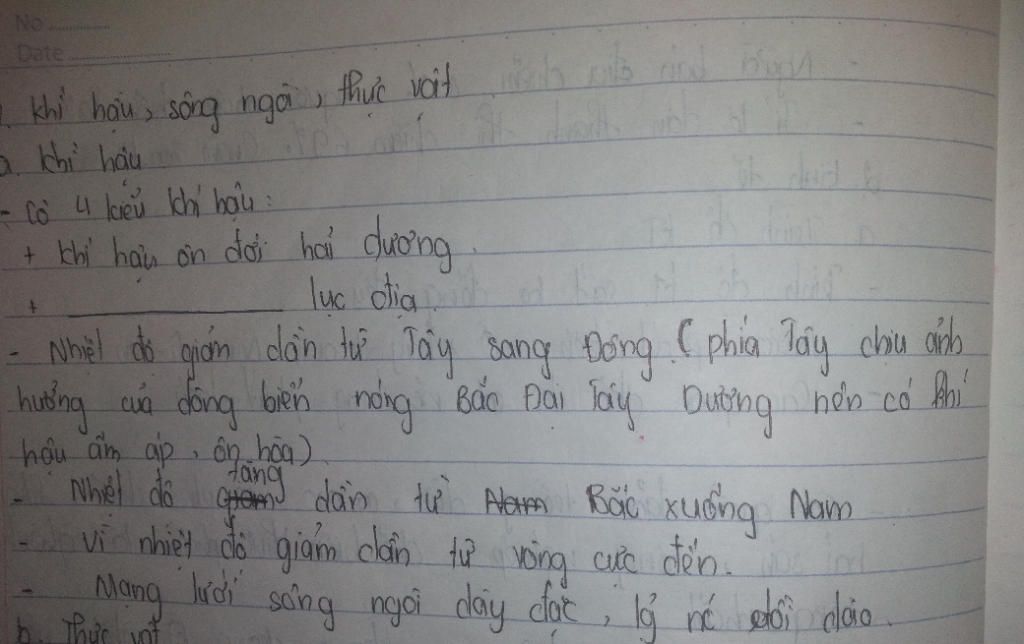 No
Date
khí hậu, sông ngòi, thực vật
a. khí hậu
- Có 4 kiểu khí hậu:
+ khí hậu ôn đới hải dương.
+ __________ lục địa.
- Nhiệt độ giảm dần từ Tây sang Đông. (phía Tây chịu ảnh
hưởng của dòng biển nóng Bắc Đại Tây Dương nên có khí
hậu ấm áp, ôn hòa)
tăng
- Nhiệt độ giảm dần từ Nam Bắc xuống Nam
- Vì nhiệt độ giảm dần từ vòng cực đến.
- Mạng lưới sông ngòi dày đặc, lg nc dồi dào.
b. Thực vật